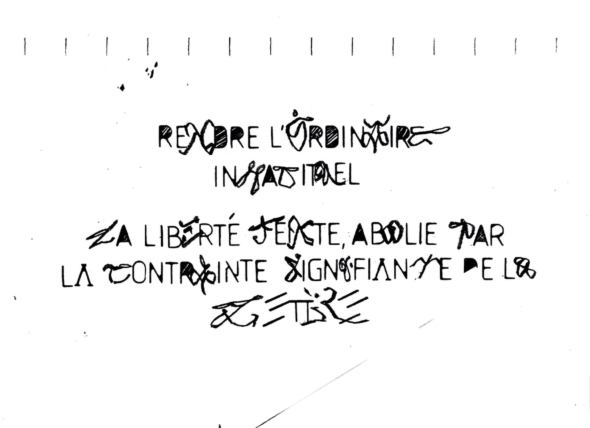 RENDRE L'ORDINAIRE
INHABITUEL
LA LIBERTÉ ABOLIE PAR
LA CONTRAINTE SIGNIFIANTE DE LA
LETTRE